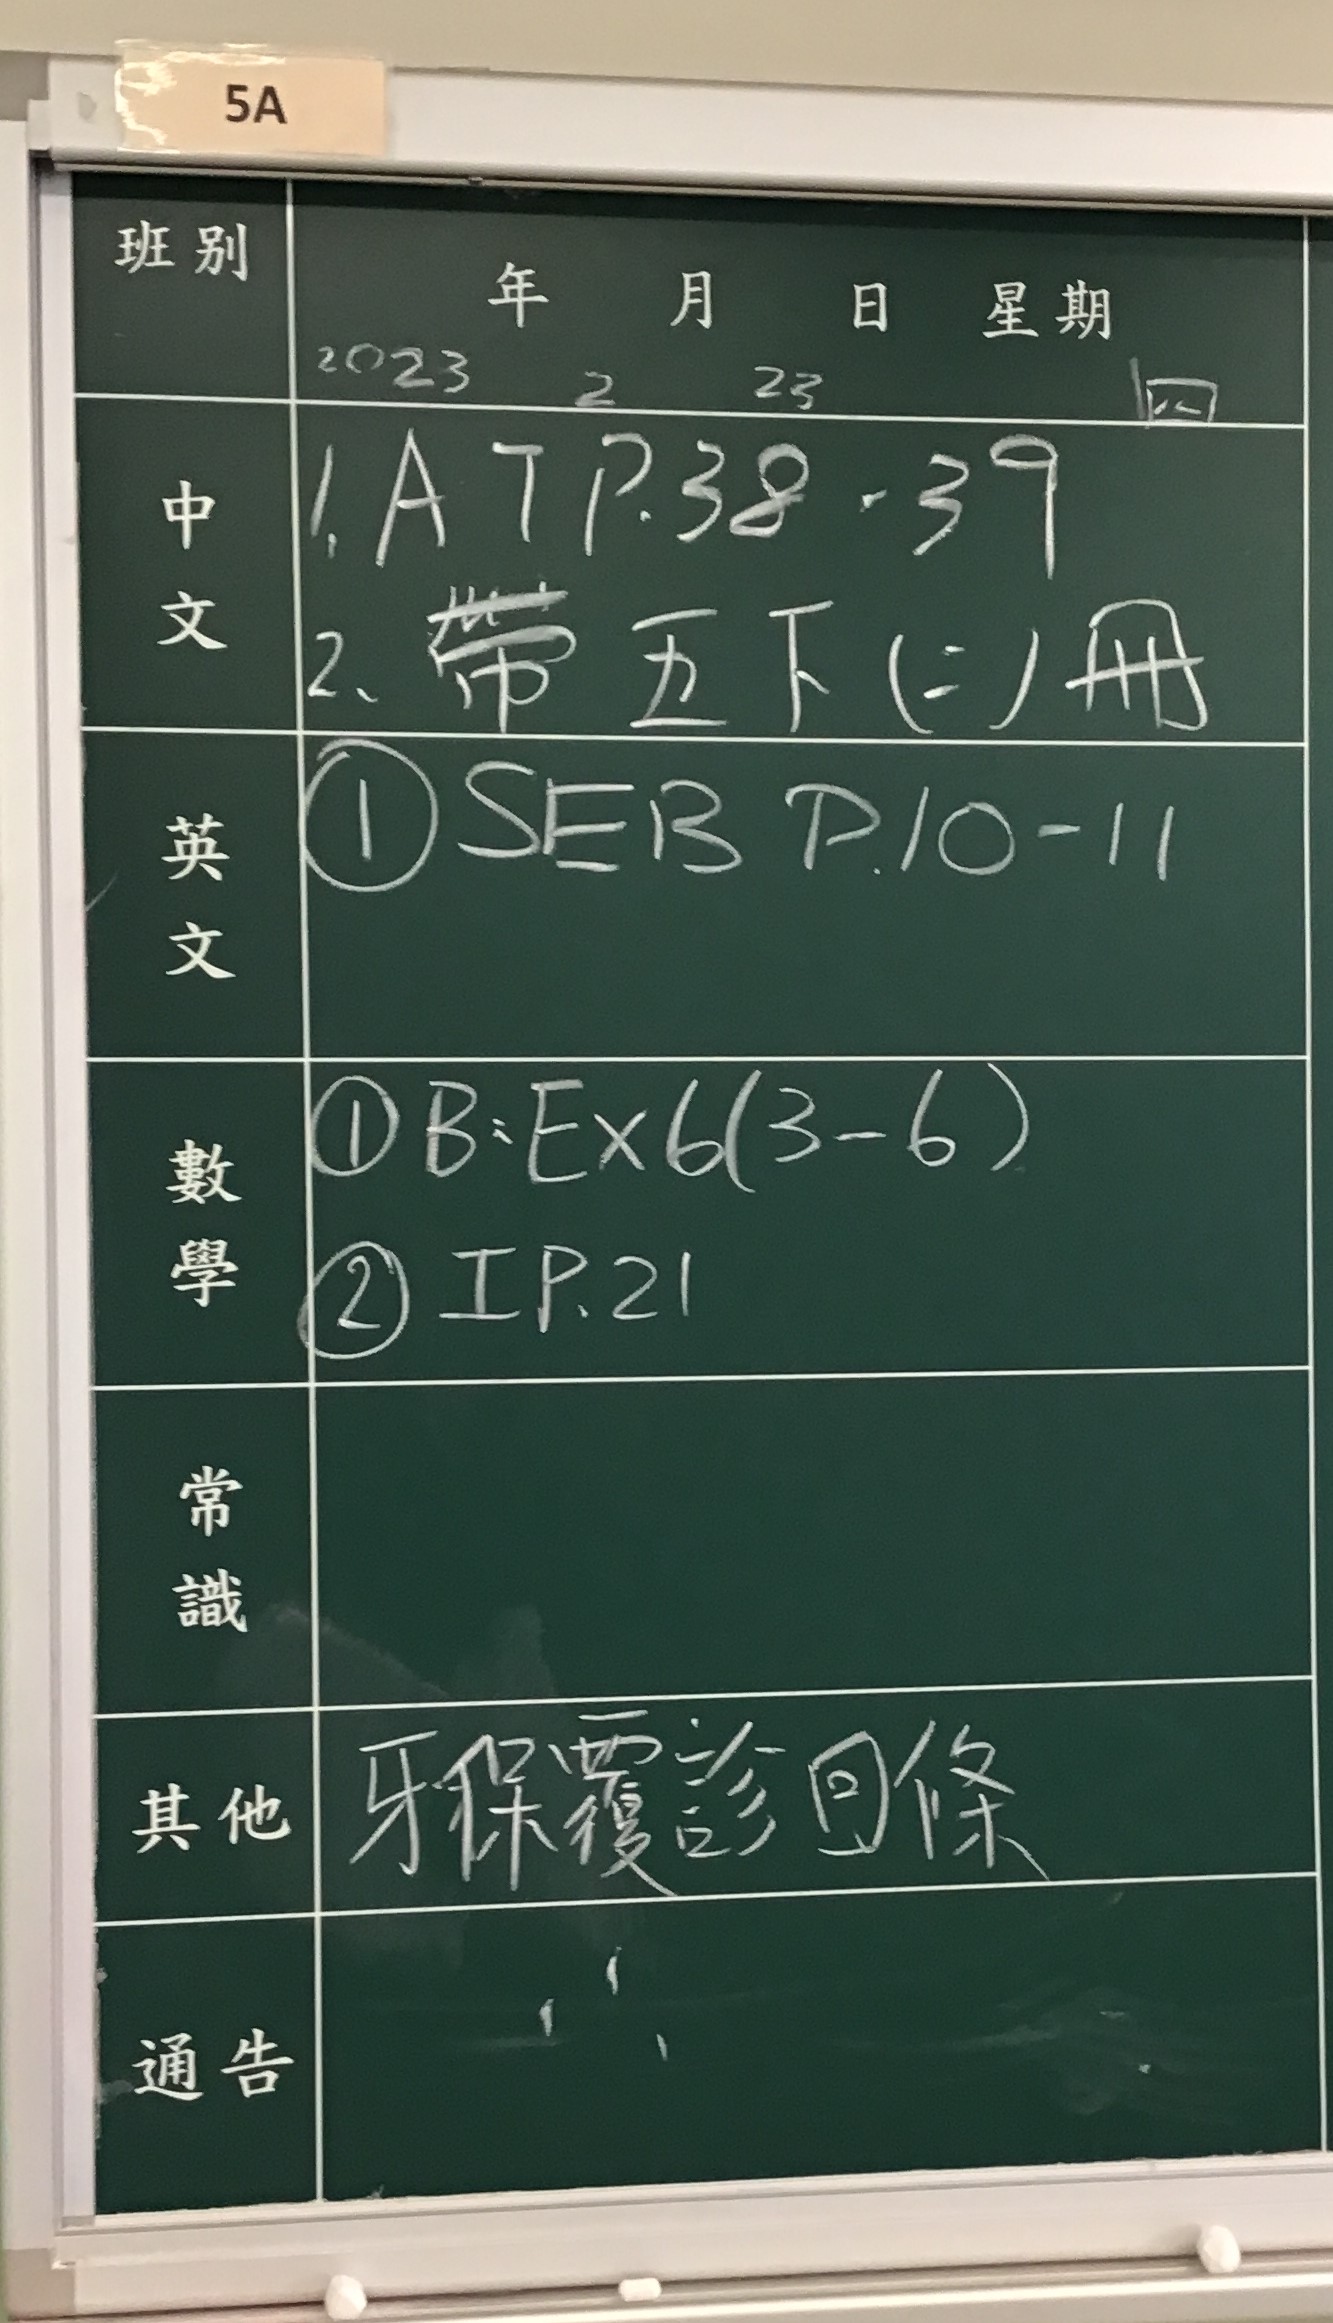 5A
班別
年 月 日 星期
2023 2 23 四
中文
1. A T P.38 - 39
2、帶五下(二)冊
英文
① SEB P.10-11
數學
① B:Ex6(3-6)
② I P.21
常識
其他
牙保覆診回條
通告